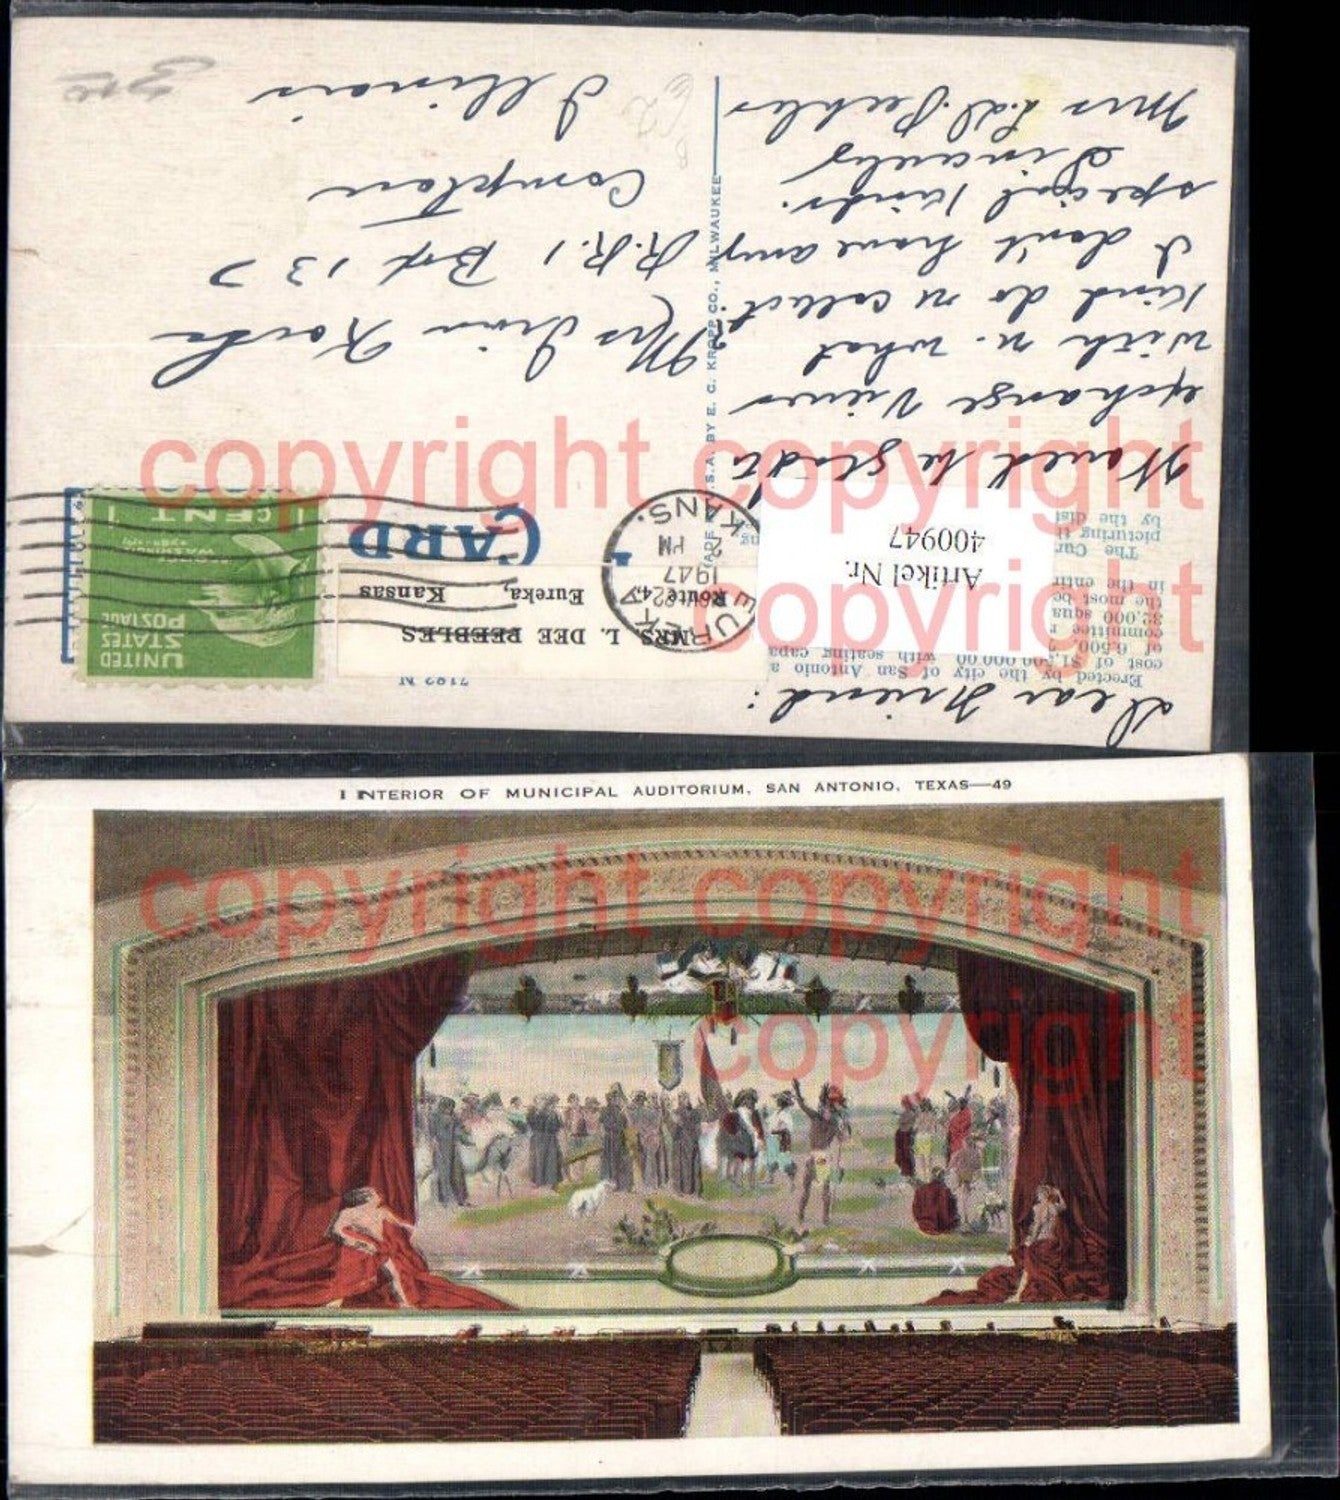 Erected by the city of San Antonio a
cost of $1,500,000.00 with seating capa
of 6,500,
committee r
32,000 squa
the most be
in the entir
The Cur
picturing th
by the dist
Artikel Nr.
400947
Dear Friend:
Would be glad to
exchange Views
with u. what
kind do u collect?
I don't have any
special kinds.
Sincerely
Mrs L.D. Peebles
MADE IN U.S.A. BY E. C. KROPP CO., MILWAUKEE
7182 N
MRS. L. DEE PEEBLES
Route 4, Eureka, Kansas
CARD
EUREKA
1947
PM
KANS.
UNITED
STATES
POSTAGE
1 CENT 1
Mrs Irvin
R.R. 1 Box 137
Compton
Illinois
INTERIOR OF MUNICIPAL AUDITORIUM, SAN ANTONIO, TEXAS—49
copyright copyright
copyright
copyright copyright
copyright